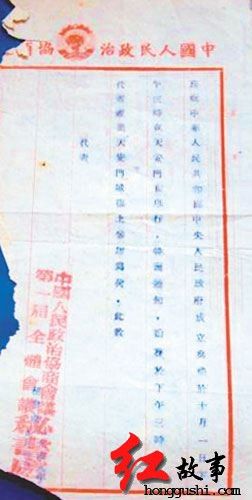 中國人民政治協
慶祝中華人民共和國中央人民政府成立典禮於十月一日
午三時在天安門舉行,特此通知,請 於下午三時
代表 天安門城樓上參加為荷。此致
代表
中國人民政治協商會議
第一屆全體會議秘書處
红故事
honggushi.com